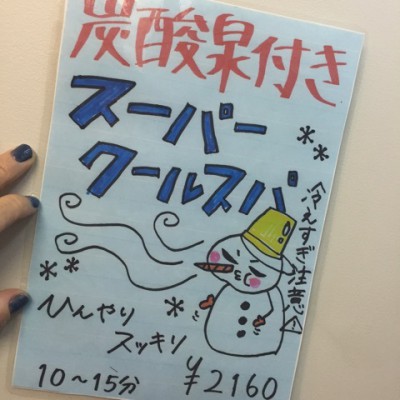 炭酸泉付き
スーパー
クールスパ
冷えすぎ注意⚠
ひんやり
スッキリ
10～15分 ¥2160